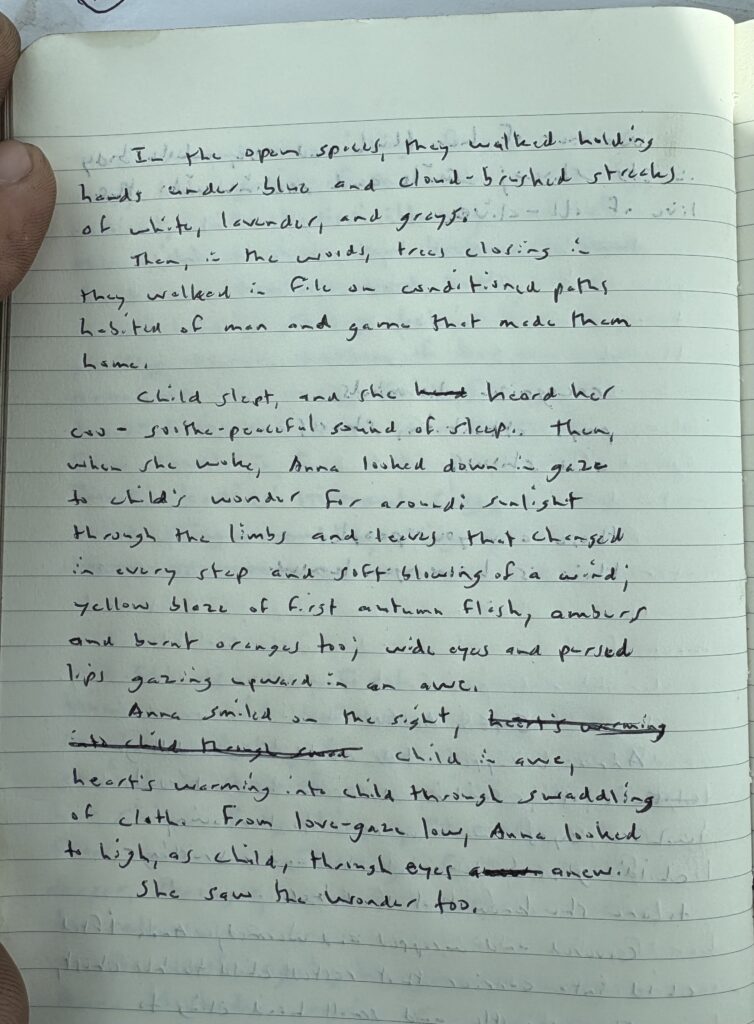 In the open spaces, they walked holding
hands under blue and cloud-brushed streaks
of white, lavender, and grays.
Then, in the woods, trees closing in
they walked in file on conditioned paths
habited of man and game that made them
home.
Child slept, and she heard her
coo - soothe-peaceful sound of sleep. Then,
when she woke, Anna looked down in gaze
to child's wonder for around: sunlight
through the limbs and leaves that changed
in every step and soft blowing of a wind;
yellow blaze of first autumn flish, amburs
and burnt oranges too; wide eyes and pursed
lips gazing upward in an awe.
Anna smiled on the sight, heart's warming
into child through child in awe,
heart's warming into child through swaddling
of cloth. From love-gaze low, Anna looked
to high, as child, through eyes anew.
She saw the wonder too.